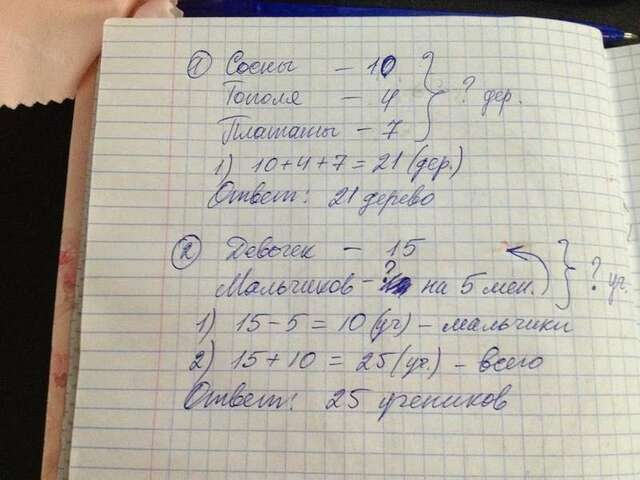 ① Сосны – 10
Тополя – 4 } ? дер.
Платаны – 7
1) 10+4+7=21 (дер.)
Ответ: 21 дерево
② Девочек – 15
Мальчиков – ? на 5 мен. } ? уч.
1) 15-5=10 (уч) – мальчики
2) 15+10=25 (уч.) – всего
Ответ: 25 учеников